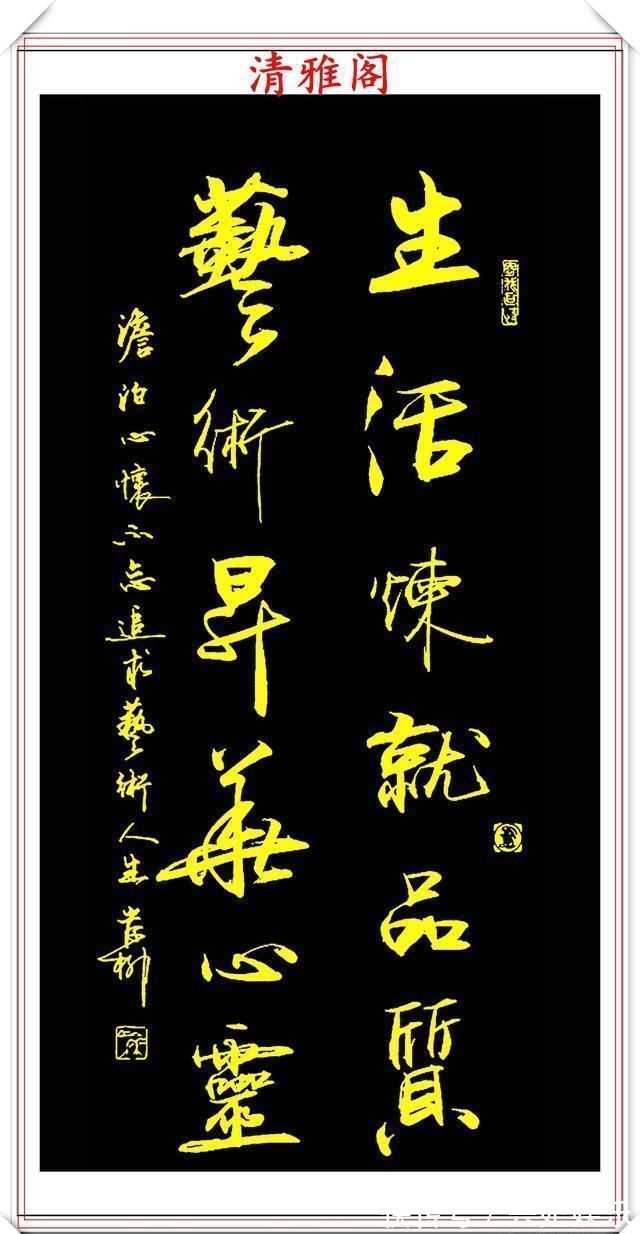 清雅阁
生活炼就品質
藝術昇華心靈
澹泊心懷不忘追求藝術人生